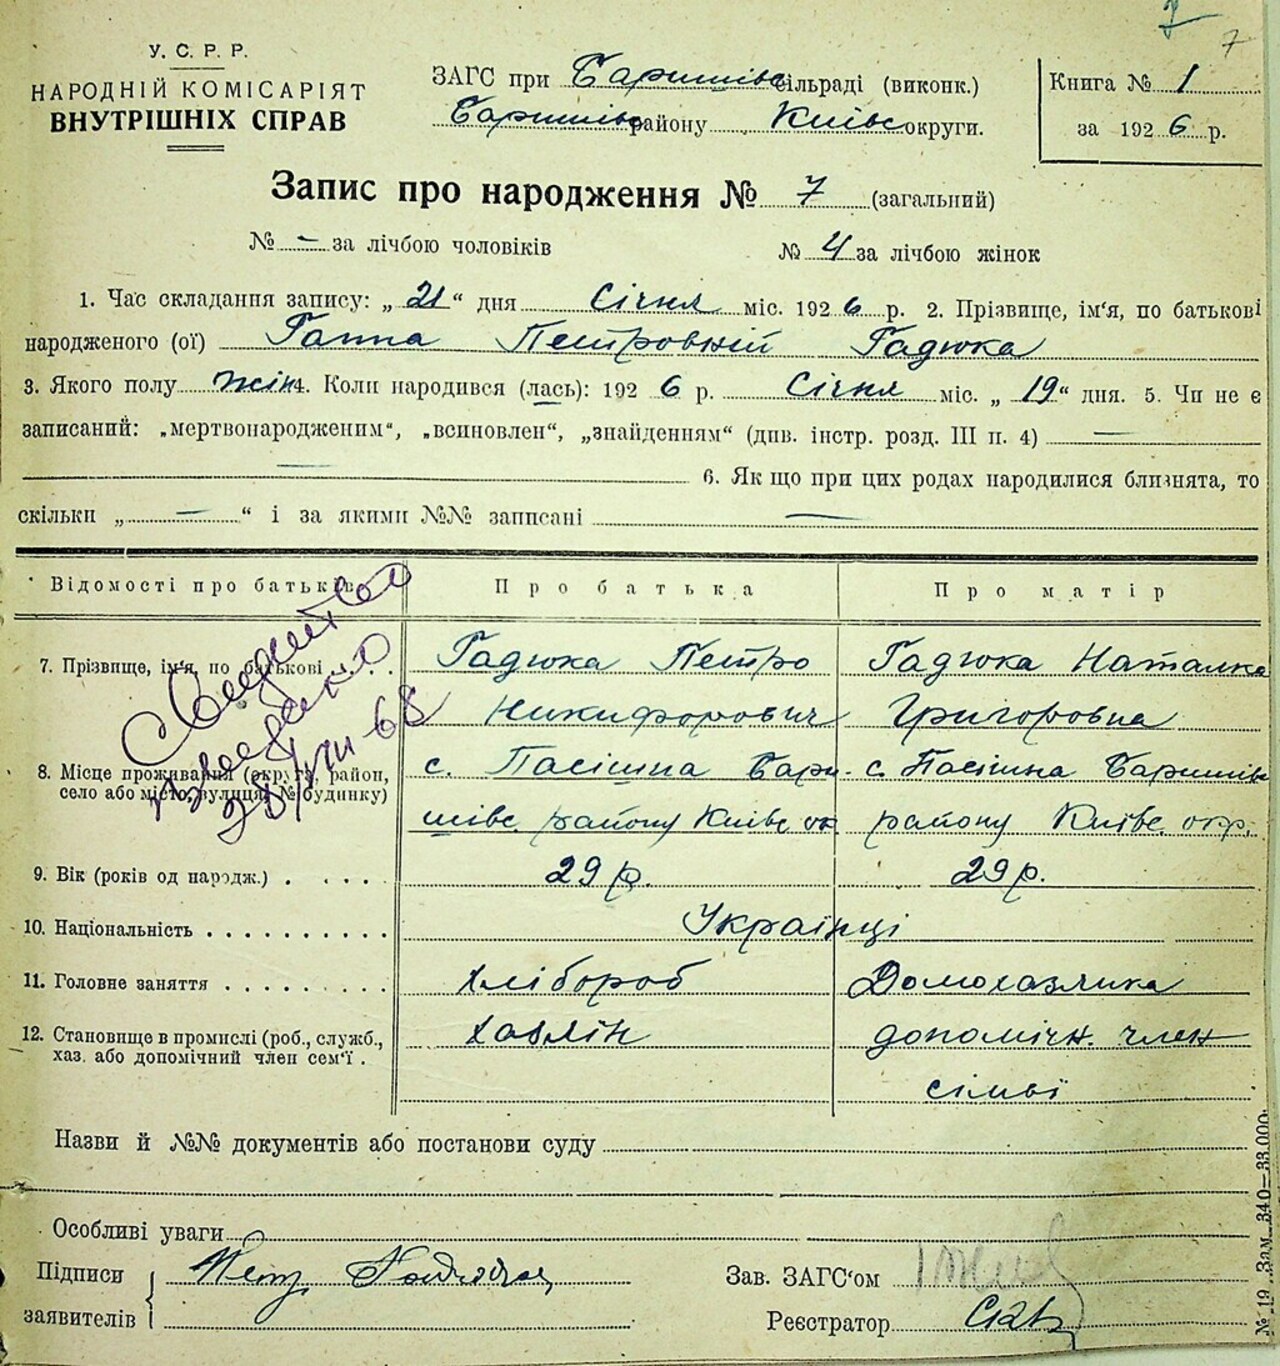 7
7
У. С. Р. Р.
НАРОДНІЙ КОМІСАРІЯТ
ВНУТРІШНІХ СПРАВ
ЗАГС при Баришівс сільраді (виконк.)
Баришівс району Київс округи.
Книга № 1
за 1926 р.
Запис про народження № 7 (загальний)
№ - за лічбою чоловіків № 4 за лічбою жінок
1. Час складання запису: „ 21 “ дня Січня міс. 1926 р. 2. Прізвище, ім'я, по батькові
народженого (ої) Ганна Петровній Гадюка
3. Якого полу жін 4. Коли народився (лась): 1926 р. Січня міс. „ 19 “ дня. 5. Чи не є
записаний: „мертвонародженим“, „всиновлен“, „знайденням“ (див. інстр. розд. III п. 4) —
— 6. Як що при цих родах народилися близнята, то
скільки „ — “ і за якими №№ записані —
Відомості про батьків Про батька Про матір
7. Прізвище, ім'я, по батькові . . . Гадюка Петро Гадюка Наталка
Никифорович Григоровна
8. Місце проживання (округа, район, село або місто, вулиця, № будинку) с. Пасішна Бари- с. Пасішна Баришівс
шівс. району Київс ок району Київс. окр.
28/VIII-68
9. Вік (років од народж.) . . . . . 29 р. 29 р.
10. Національність . . . . . . . . . . Українці
11. Головне заняття . . . . . . . . . Хлібороб Домохазяйка
12. Становище в промислі (роб., служб., хаз. або допомічний член сем'ї . Хазяїн допомічн. член
сімьї
Назви й №№ документів або постанови суду
Особливі уваги
Підписи
заявителів
Зав. ЗАГС'ом
Реєстратор
№ 19 Зам. 340—33.000.